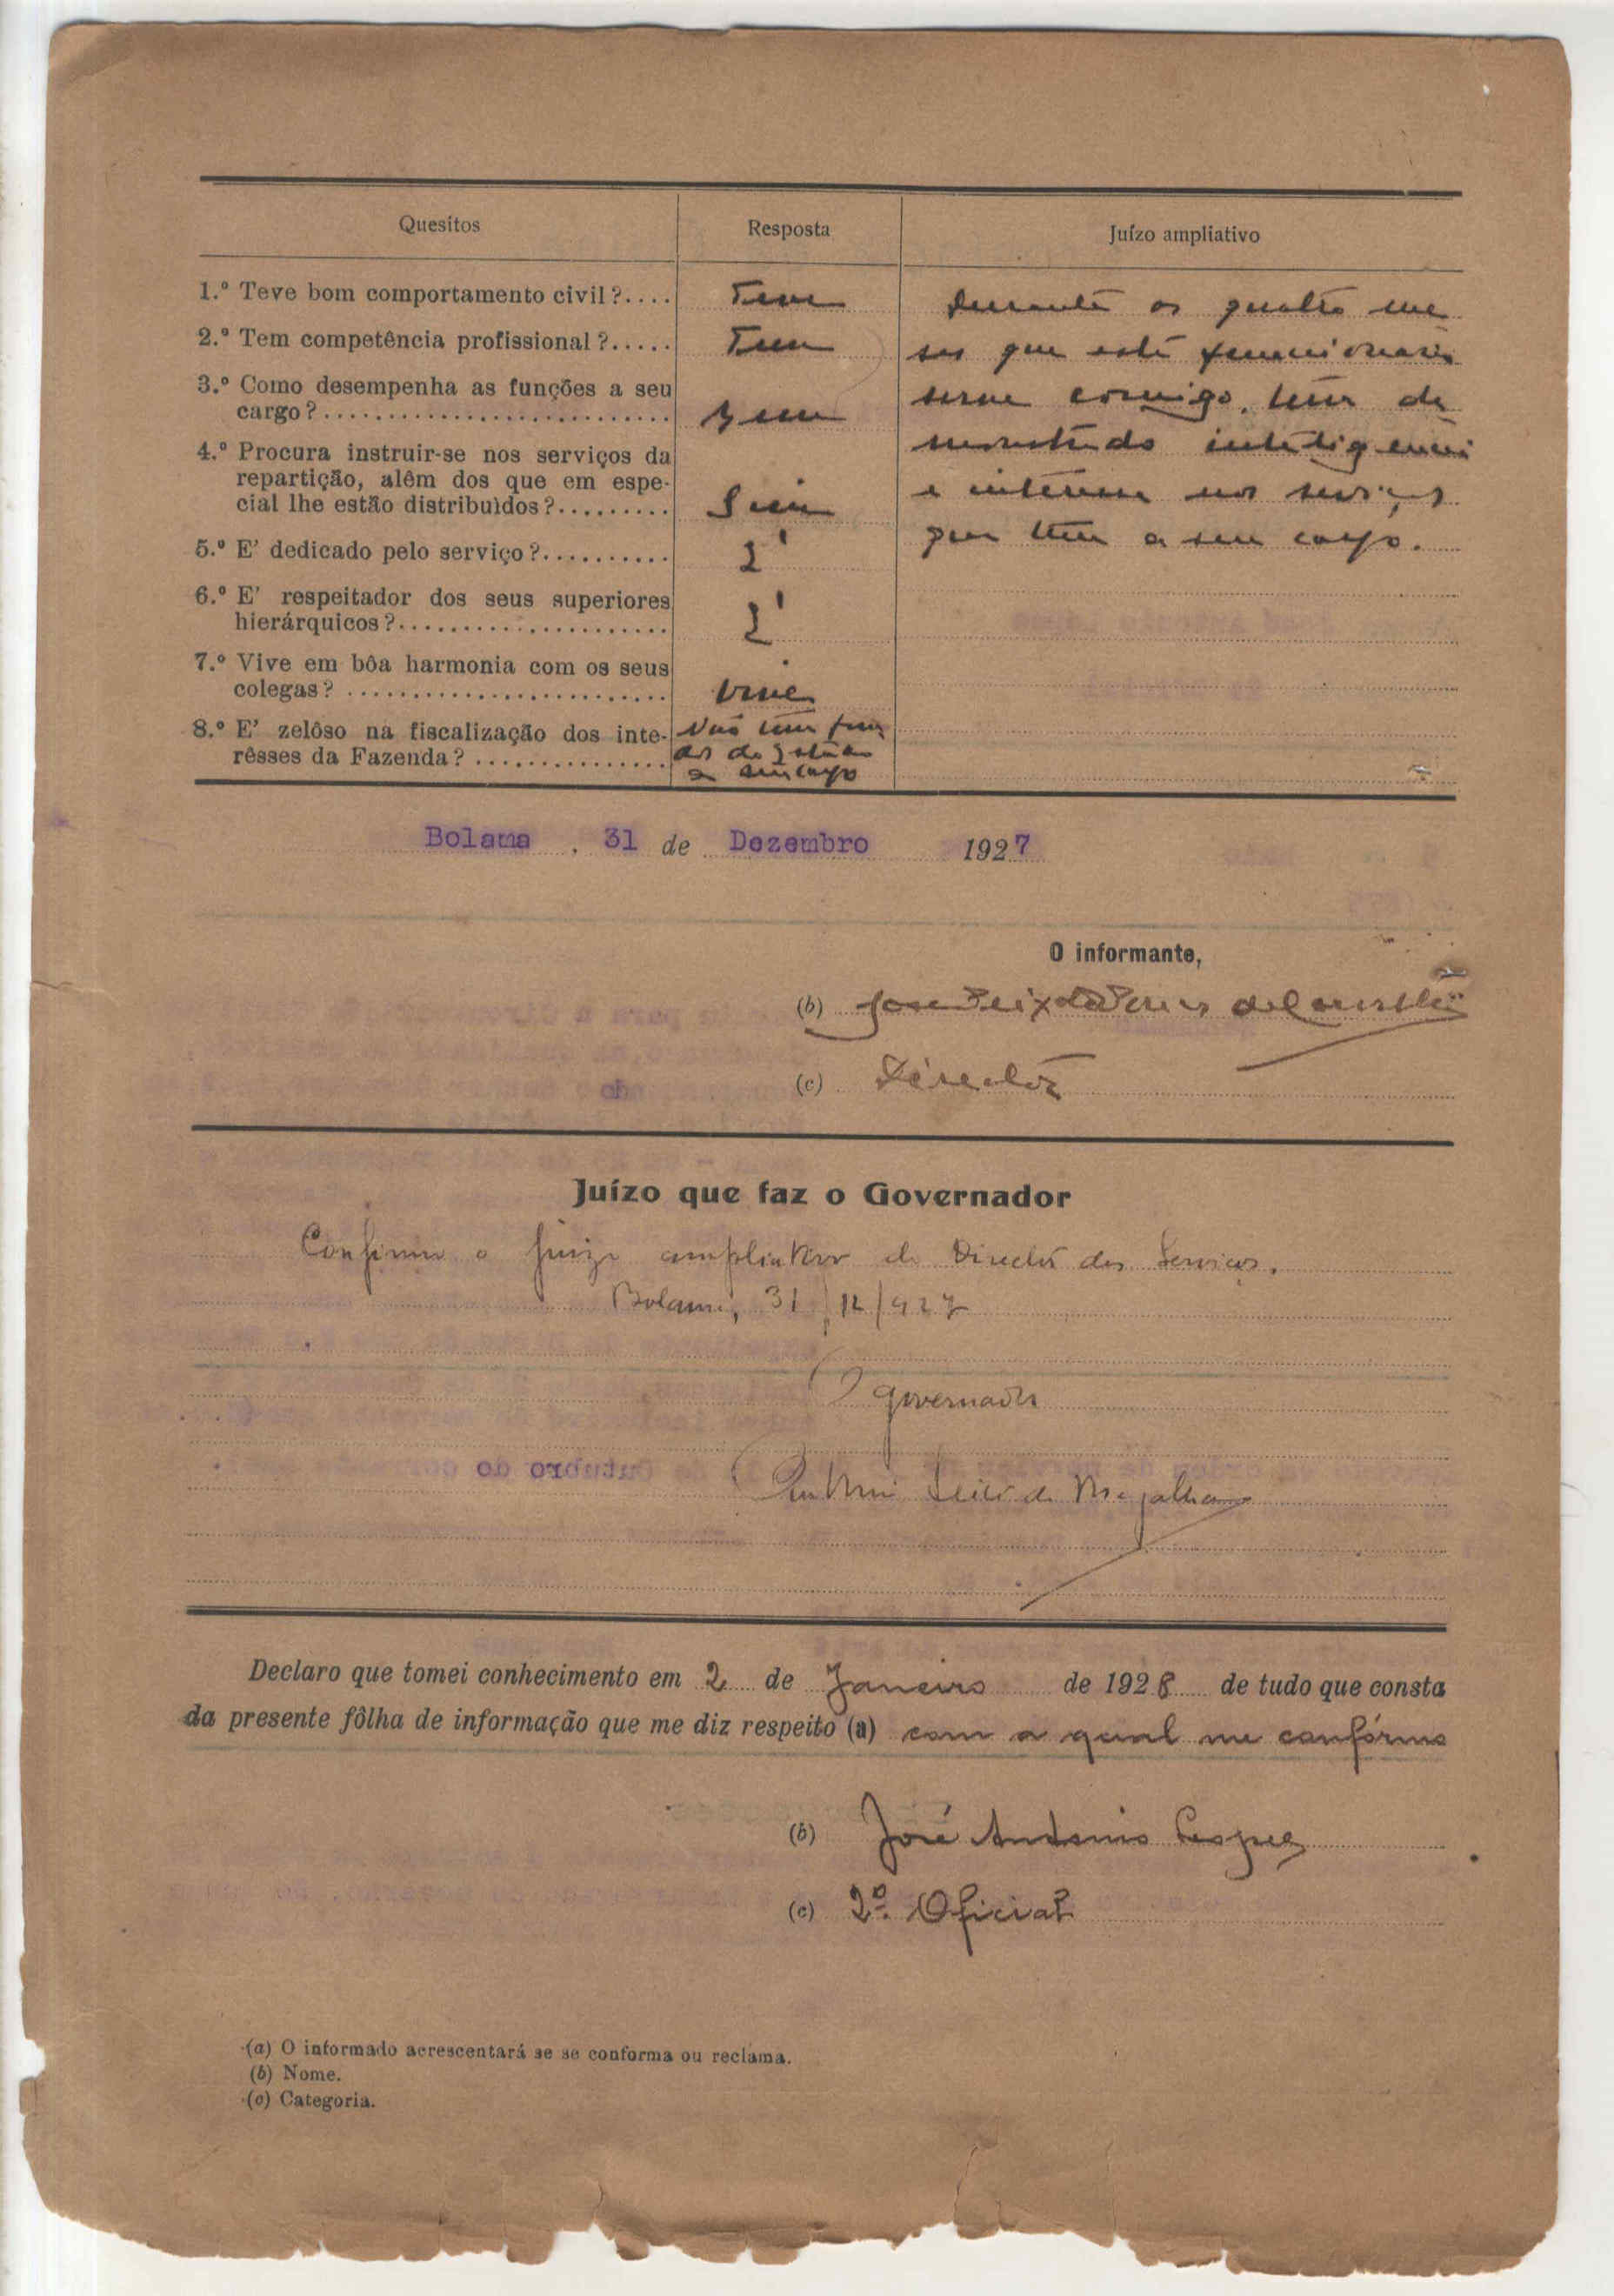 Quesitos
Resposta
Juízo ampliativo
1.º Teve bom comportamento civil?....
Teve
2.º Tem competência profissional?.....
Tem
3.º Como desempenha as funções a seu
cargo?...........................
Bem
4.º Procura instruir-se nos serviços da
repartição, alêm dos que em espe-
cial lhe estão distribuìdos?.........
Sim
5.º E' dedicado pelo serviço?..........
É
6.º E' respeitador dos seus superiores
hierárquicos?.....................
É
7.º Vive em bôa harmonia com os seus
colegas? .........................
Vive
8.º E' zelôso na fiscalização dos inte-
rêsses da Fazenda? ...............
Não tem fun
a seu cargo
Durante os quatro me
ses que este funcionario
serve comigo, tem de
monstrado inteligencia
e interesse nos serviços
que tem a seu cargo.
Bolama, 31 de Dezembro 1927
O informante,
(b) José Peixoto
(c) Director
Juízo que faz o Governador
Confirmo o juizo ampliativo do Director dos Serviços.
Bolama, 31/12/927
O Governador
Leite de Magalhães
Declaro que tomei conhecimento em 2 de Janeiro de 1928 de tudo que consta
da presente fôlha de informação que me diz respeito (a) com a qual me confórmo
(b) José Antonio Lopes
(c) 2º. Oficial
(a) O informado acrescentará se se conforma ou reclama.
(b) Nome.
(c) Categoria.